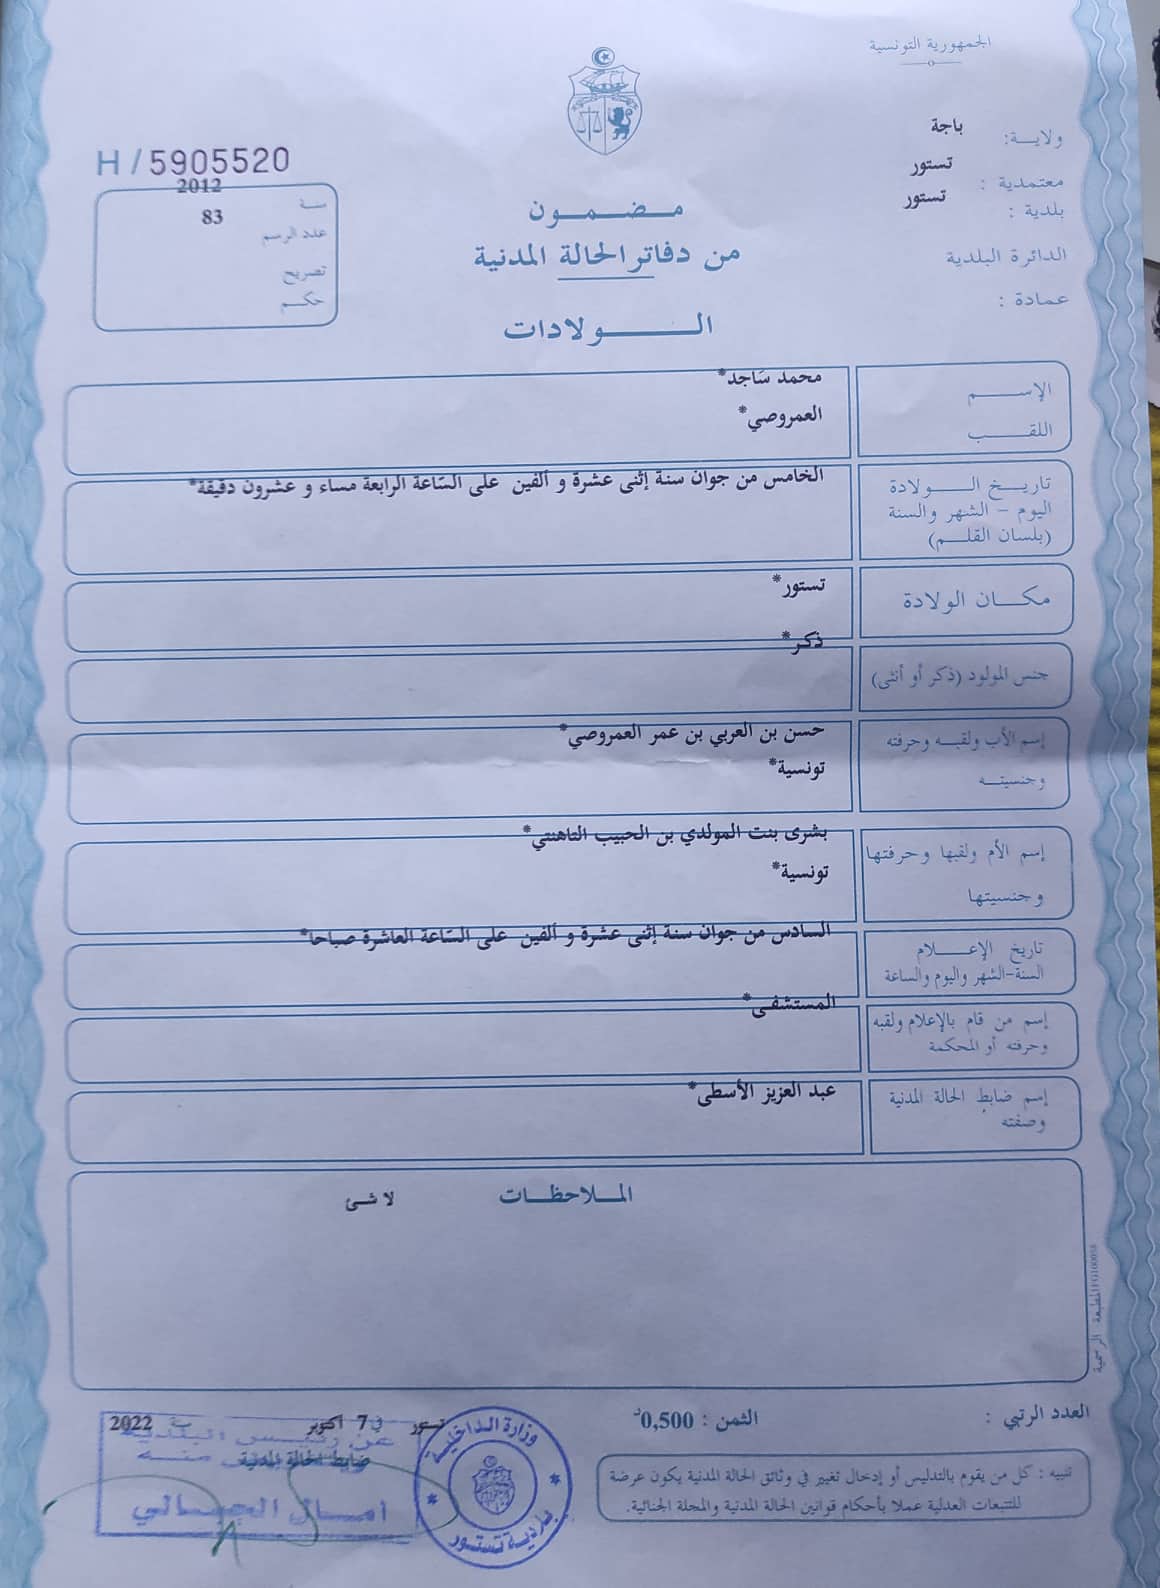 الجمهورية التونسية
ولاية: باجة
معتمدية : تستور
بلدية : تستور
الدائرة البلدية
عمادة :
H / 5905520
سنة 2012
عدد الرسم 83
تصريح
حكم
مضمون
من دفاتر الحالة المدنية
الولادات
الإسم محمد ساجد*
اللقب العمروصي*
تاريخ الولادة الخامس من جوان سنة إثنى عشرة و ألفين على السّاعة الرابعة مساء و عشرون دقيقة*
اليوم - الشهر والسنة
(بلسان القلم)
مكان الولادة تستور*
جنس المولود (ذكر أو أنثى) ذكر*
إسم الأب ولقبه وحرفته حسن بن العربي بن عمر العمروصي*
وجنسيته تونسية*
إسم الأم ولقبها وحرفتها بشرى بنت المولدي بن الحبيب التاهنتي*
وجنسيتها تونسية*
تاريخ الإعلام السادس من جوان سنة إثنى عشرة و ألفين على السّاعة العاشرة صباحا*
السنة-الشهر واليوم والساعة
إسم من قام بالإعلام ولقبه المستشفى*
وحرفته أو المحكمة
إسم ضابط الحالة المدنية عبد العزيز الأسطى*
وصفته
الملاحظات لا شئ
المطبعة الرسمية
العدد الرتبي :
الثمن : 0,500د
تستور في 7 أكتوبر سنة 2022
ضابط الحالة المدنية
عن رئيس البلدية
وزارة الداخلية
بلدية تستور
تنبيه : كل من يقوم بالتدليس أو إدخال تغيير في وثائق الحالة المدنية يكون عرضة
للتتبعات العدلية عملا بأحكام قوانين الحالة المدنية والمجلة الجنائية.